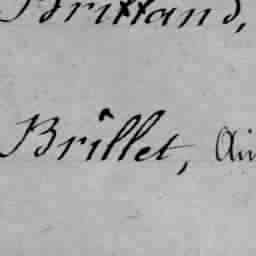 Brittand,
Brillet, Ai